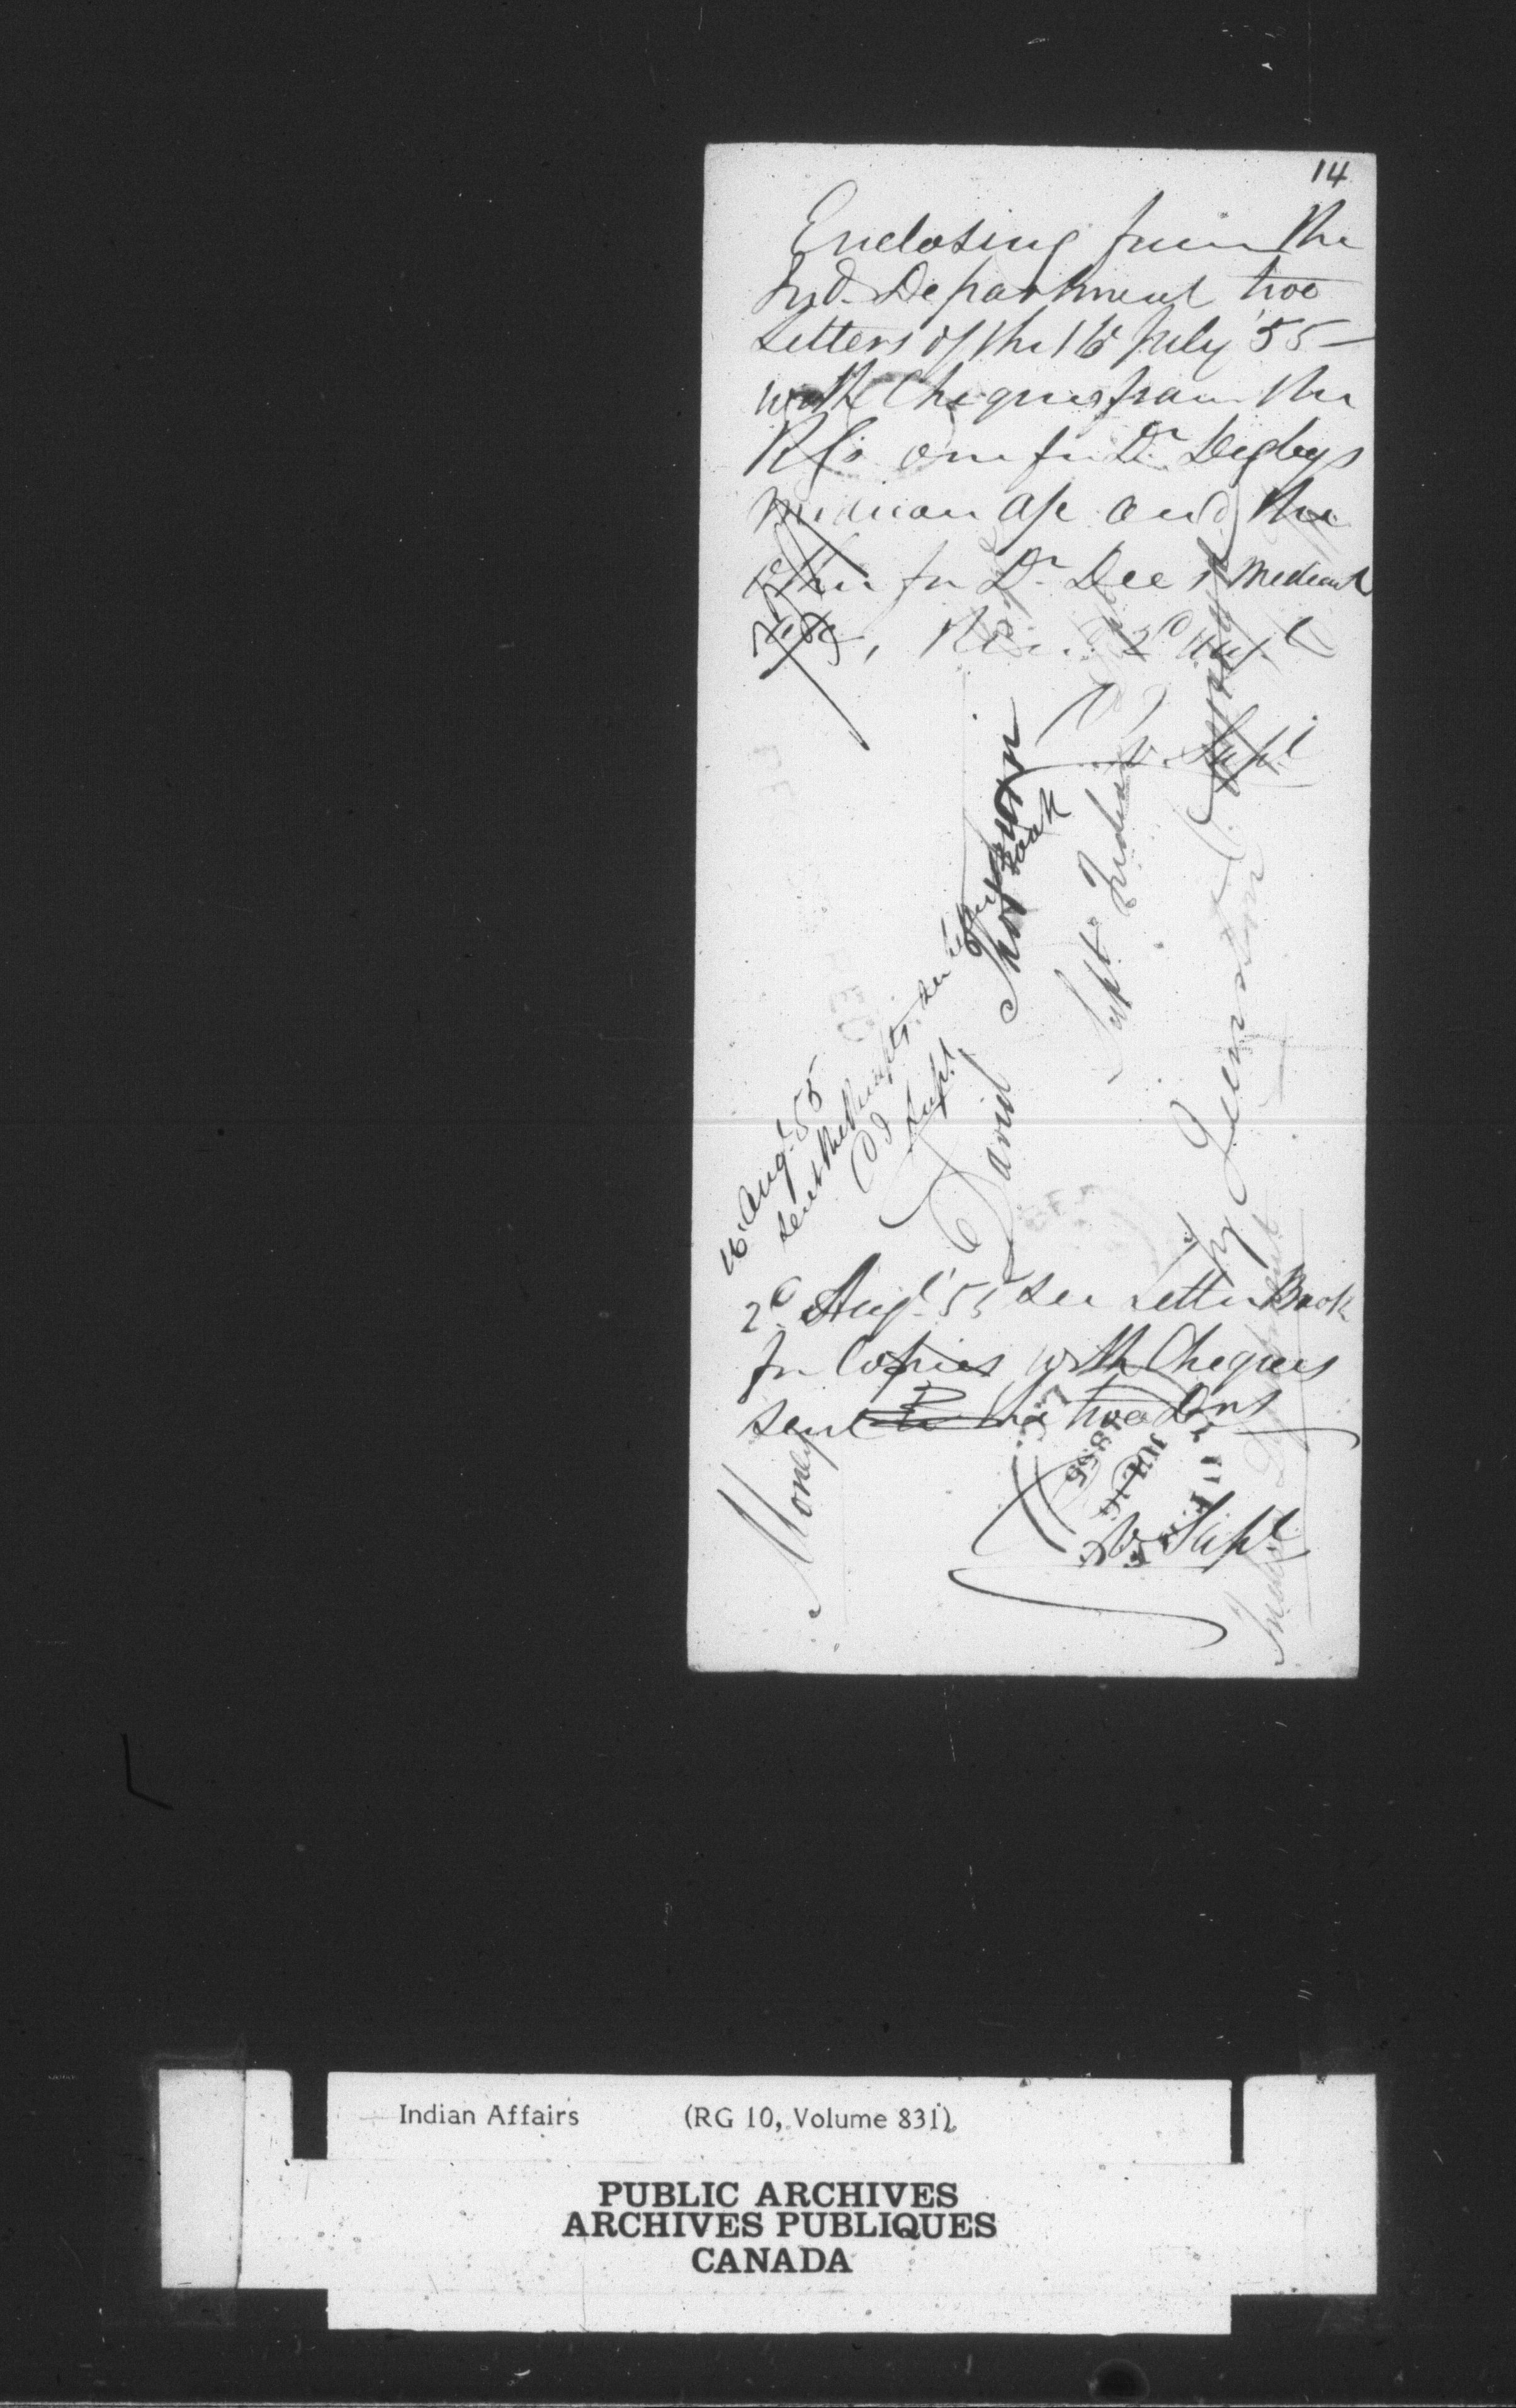 14
Enclosing from the
Ind. Department two
Letters of the 16 July '55 –
with Cheques from the
one for Dr Digbys
a/c and the
other for Dr Dee's
2d Augt
V. Supt
David Thorburn
Supt Indian
Queenston
16 Augt 55
sent the Receipts. See Letter Book
Supt
2d Augt 55 See Letter Book
for Copies with Cheques
sent the two Drs
V. Supt
Money
Indian Department
JUL 16
1855
Indian Affairs (RG 10, Volume 831)
PUBLIC ARCHIVES
ARCHIVES PUBLIQUES
CANADA